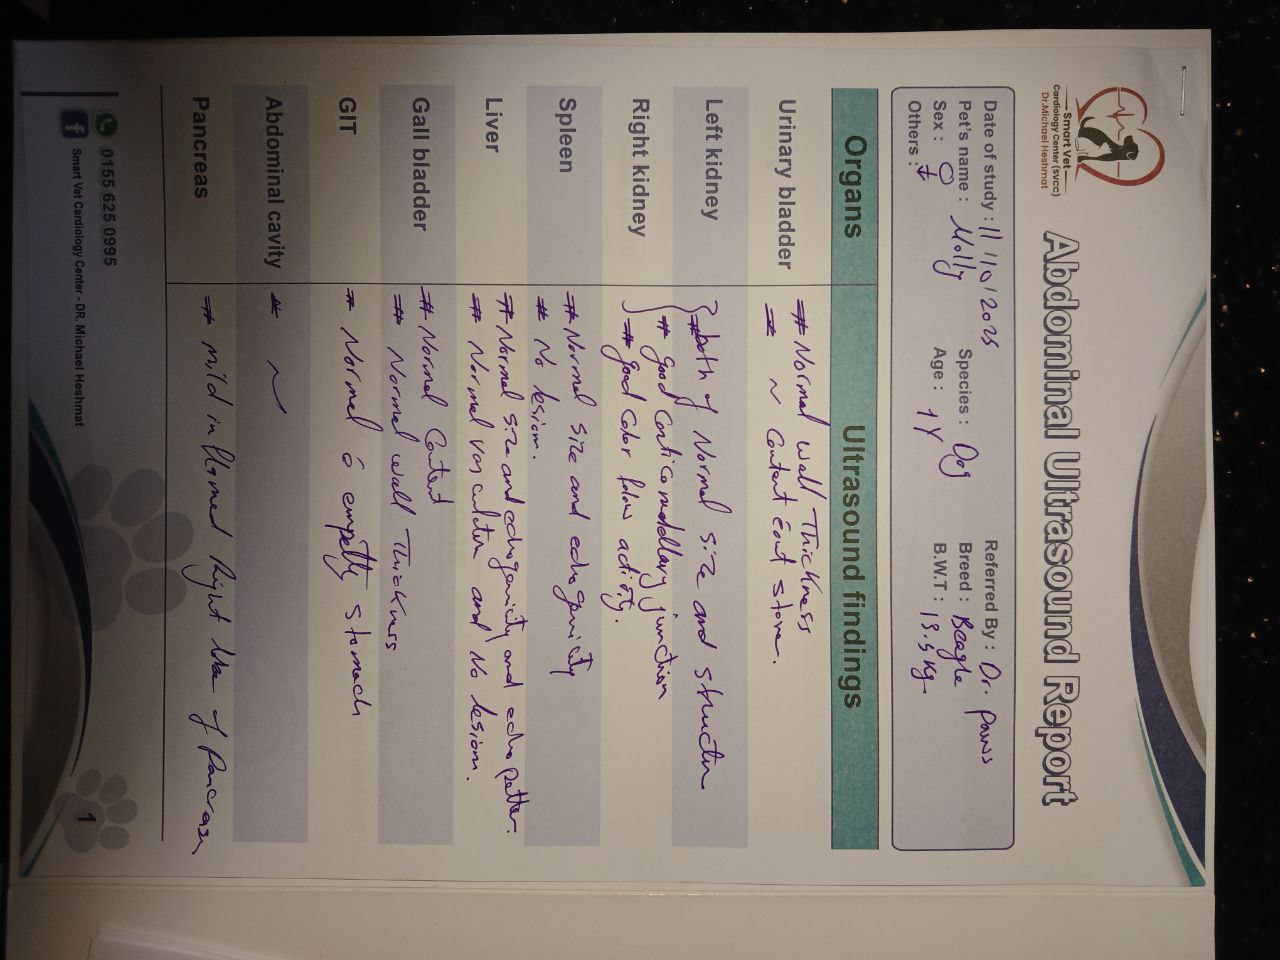 Smart Vet
Cardiology Center (SVCC)
Dr.Michael Heshmat
Abdominal Ultrasound Report
Date of study : 11/10/2025 Referred By : Dr. Paws
Pet's name : Molly Species : Dog Breed : Beagle
Sex : ♀ Age : 1Y B.W.T : 13.5 kg
Others :
Organs Ultrasound findings
Urinary bladder # Normal wall Thickness
# ~ Content c̄out stone.
Left kidney # both of Normal size and structur
# good Corticomedullary junction
Right kidney # good Color folow activity.
Spleen # Normal size and echogenicity
# No lesion.
Liver # Normal size and echogenicity and echo patter.
# Normal vasculatur and No lesion.
Gall bladder # Normal Content
# Normal wall Thickness
GIT # Normal c̄ empetty stomach
Abdominal cavity # ~
Pancreas # mild inflamed Right lobe of Pancreas
0155 625 0995
Smart Vet Cardiology Center - DR. Michael Heshmat
1